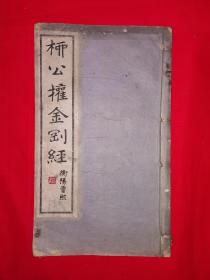 柳公權金剛經
衡陽曾熙